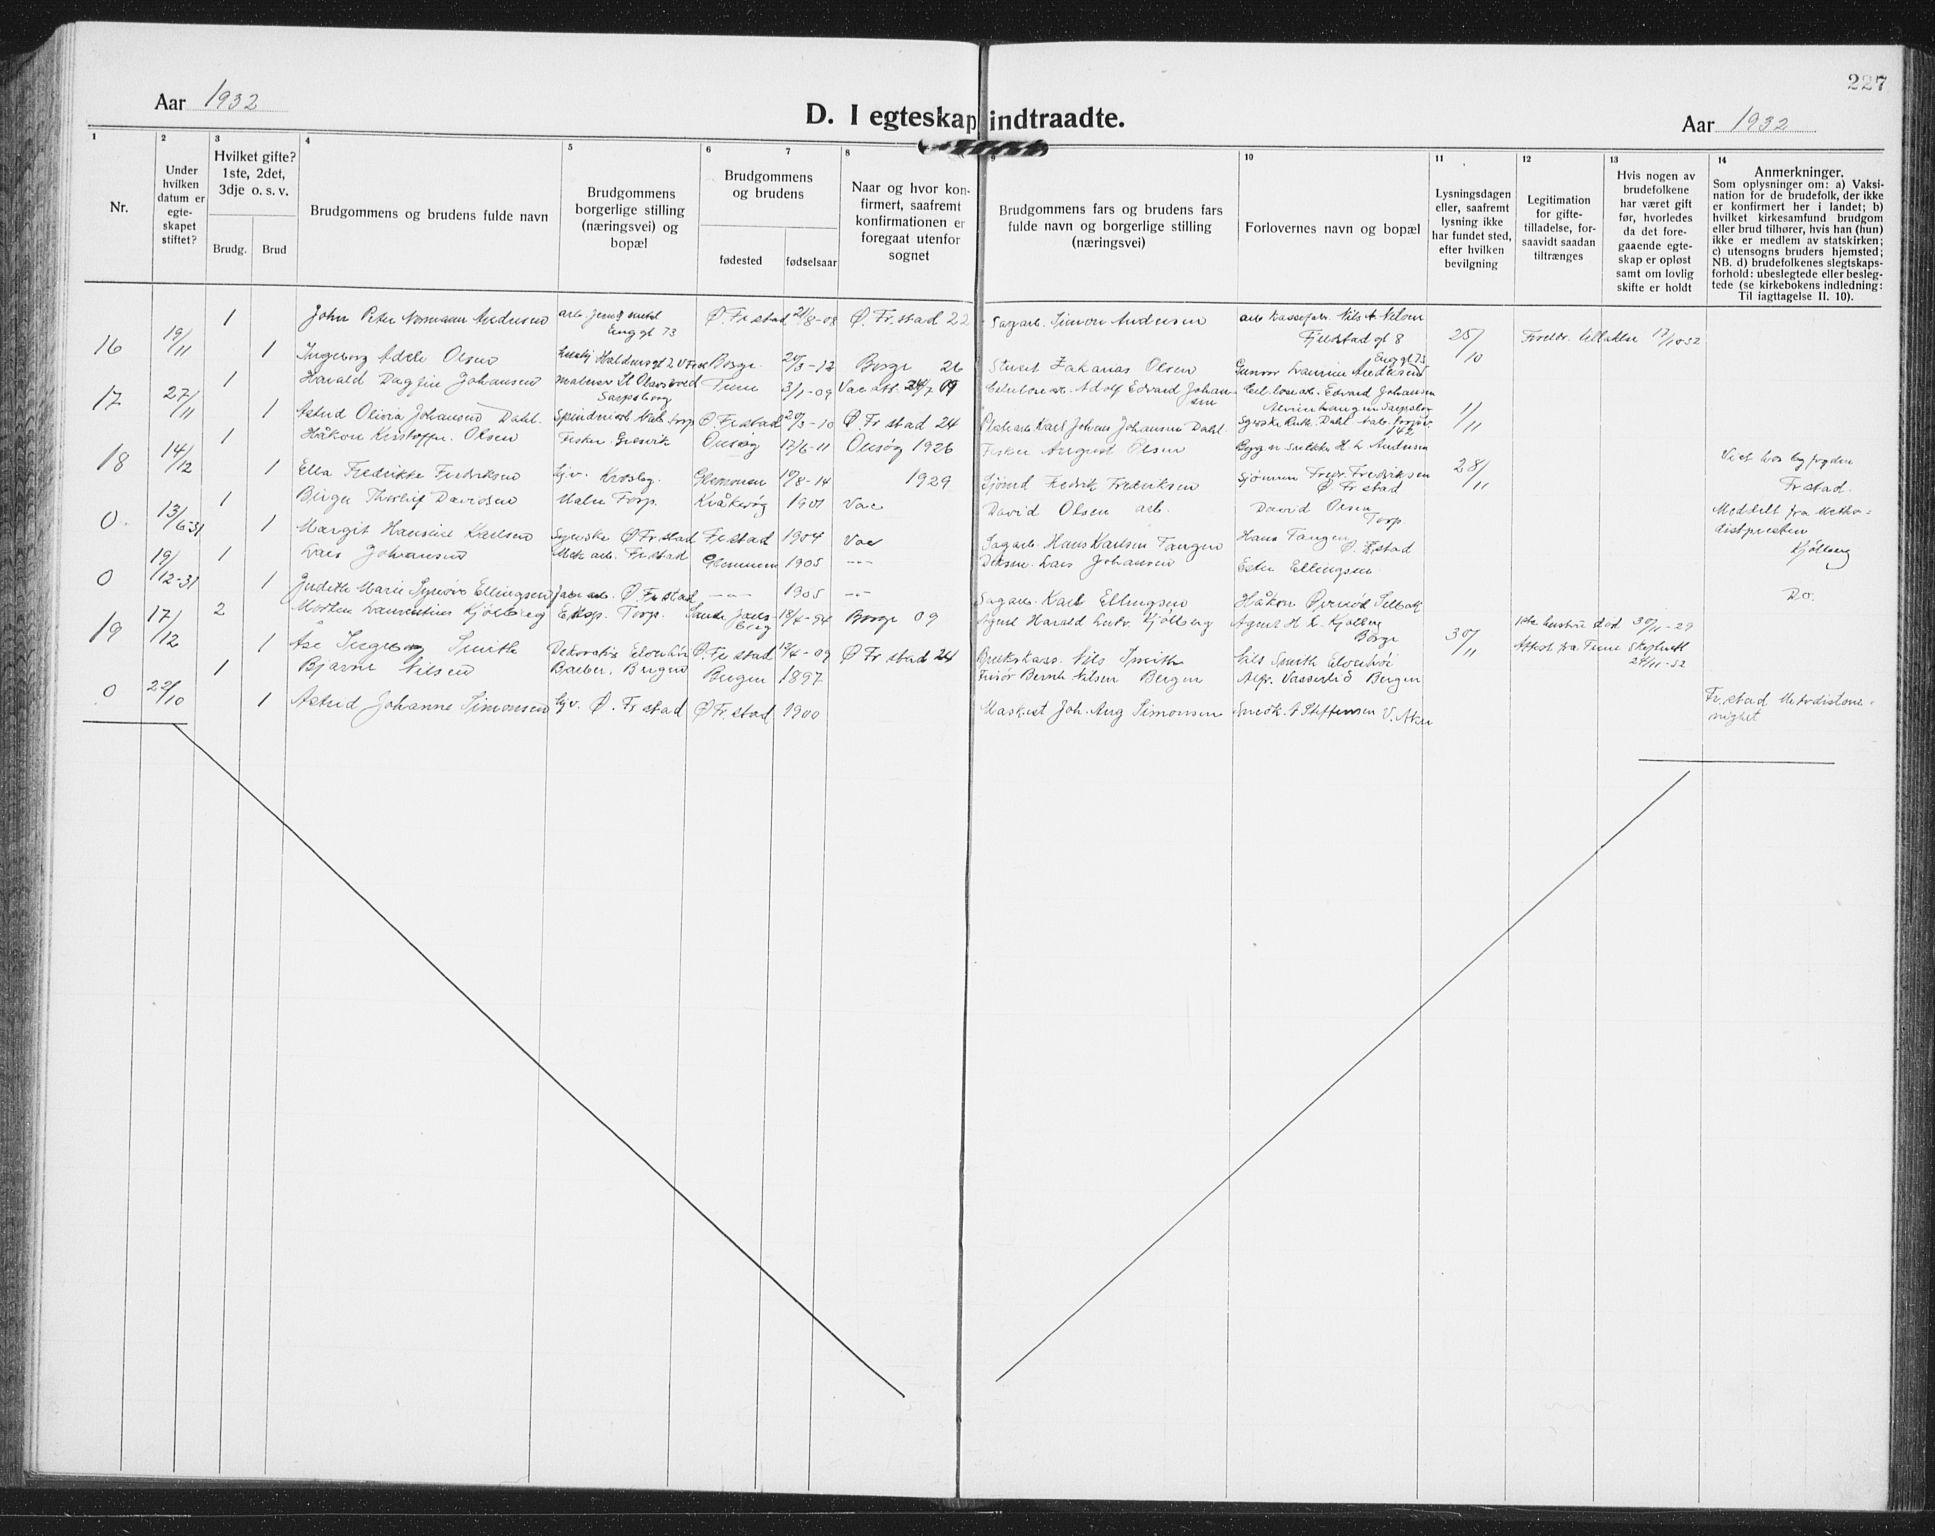 227
Aar 1932
D. I egteskap indtraadte.
Aar 1932
1 2 3 4 5 6 7 8 9 10 11 12 13 14
Nr.
Under hvilken datum er egte-skapet stiftet?
Hvilket gifte? 1ste, 2det, 3dje o. s. v.
Brudg. Brud
Brudgommens og brudens fulde navn
Brudgommens borgerlige stilling (næringsvei) og bopæl
Brudgommens og brudens
fødested fødselsaar
Naar og hvor kon-firmert, saafremt konfirmationen er foregaat utenfor sognet
Brudgommens fars og brudens fars fulde navn og borgerlige stilling (næringsvei)
Forlovernes navn og bopæl
Lysningsdagen eller, saafremt lysning ikke har fundet sted, efter hvilken bevilgning
Legitimation for gifte-tilladelse, for-saavidt saadan tiltrænges
Hvis nogen av brudefolkene har været gift før, hvorledes da det fore-gaaende egte-skap er opløst samt om lovlig skifte er holdt
Anmerkninger.
Som oplysninger om: a) Vaksi-nation for de brudefolk, der ikke er konfirmert her i landet; b) hvilket kirkesamfund brudgom eller brud tilhører, hvis han (hun) ikke er medlem av statskirken; c) utensogns bruders hjemsted; NB. d) brudefolkenes slegtskaps-forhold: ubeslegtede eller besleg-tede (se kirkebokens indledning: Til iagttagelse II. 10).
1 John Peter Normann Andersen Enggt 73 Ø. Fr.stad 21/8-08 Ø. Fr.stad 22 Sagarb. Simon Andersen Nils A Nilsen
16 19/11 Fjeldstad gt 8 25/10 Foreldr. tillatelse 17/10 32
1 Ingeborg Adele Olsen Borge 20/3-12 Borge 26 Stuert Zakarias Olsen Gunvor Andersen Enggt 73
1 Harald Dagfin Johansen Maler St Olavs vold Sarpsborg Tune 3/1-09 Adolf Edvard Johansen Edvard Johansen
17 27/11 1/11
1 Astrid Olivia Johansen Dahl. Ø. Fr.stad 20/3-10 Ø. Fr.stad 24 Karl Johan Johansen Dahl
1 Håkon Kristoffer Olsen Fisker Gresvik Onsøy 17/6-11 Onsøy 1926 Fisker August Olsen H. L. Andersen
18 14/12 28/11 Viet hos byfogden Fr.stad.
1 Ella Fredrikke Fredriksen Glemmen 10/8-14 1929 Sjømd Fredrik Fredriksen Sjømann Fredr. Fredriksen Ø Fr stad
1 Birger Thorleif Davidsen Maler Torp. Kråkerøy 1901 Vac David Olsen arb. David Olsen Torp
0. 13/6-31 Meddelt fra Metho-distpresten Kjølberg
1 Margit Hansine Karlsen Syerske Ø Fr.stad Fr.stad 1904 Vac Sagarb. Hans Karlsen Tangen Hans Tangen Ø. Fr.stad
1 Lars Johansen Mek. arb. Fr.stad Glemmen 1905 -〃- Lars Johansen Ester Ellingsen
0 19/12-31 Do.
1 Judith Marie Synøve Ellingsen Ø. Fr.stad -〃- 1905 -〃- Sagarb. Karl Ellingsen Håkon Selbak
2 Morten Laurentius Kjølberg Eksp. Torp. 18/4-94 Borge 09 Agent Harald Ludv. Kjølberg Agent H. L. Kjølberg Borge 1ste hustru død 30/11-29
19 17/12 30/11 Attest fra Tune Skifterett 24/11-32
1 Åse Ingeborg Smith Ø. Fr.stad 19/4-09 Ø Fr.stad 24 Nils Smith Nils Smith
1 Bjarne Nilsen Barber. Bergen Bergen 1897 Frisør Bernh. Nilsen Bergen Alfr. Vasserlid Bergen
0 22/10 Fr.stad Metodistme-nighet
1 Astrid Johanne Simonsen Ø. Fr.stad Ø Fr.stad 1900 Maskist Joh. Aug Simonsen A Steffensen V. Aker